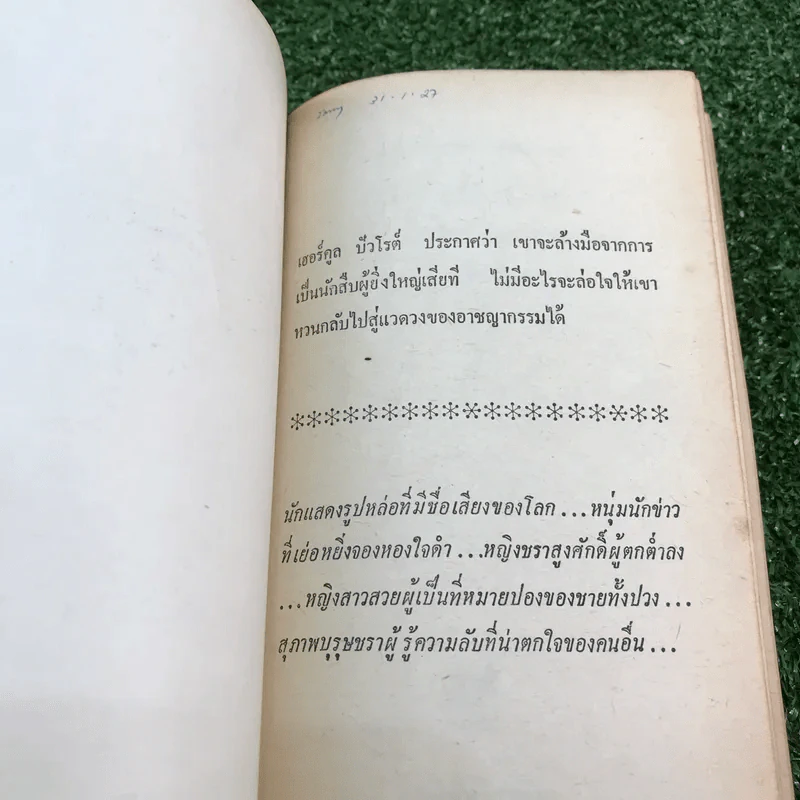 31.1.27
เฮอร์คูล ปัวโรต์ ประกาศว่า เขาจะล้างมือจากการ
เป็นนักสืบผู้ยิ่งใหญ่เสียที ไม่มีอะไรจะล่อใจให้เขา
หวนกลับไปสู่แวดวงของอาชญากรรมได้
*******************
นักแสดงรูปหล่อที่มีชื่อเสียงของโลก...หนุ่มนักข่าว
ที่เย่อหยิ่งจองหองใจดำ...หญิงชราสูงศักดิ์ผู้ตกต่ำลง
...หญิงสาวสวยผู้เป็นที่หมายปองของชายทั้งปวง...
สุภาพบุรุษชราผู้รู้ความลับที่น่าตกใจของคนอื่น...